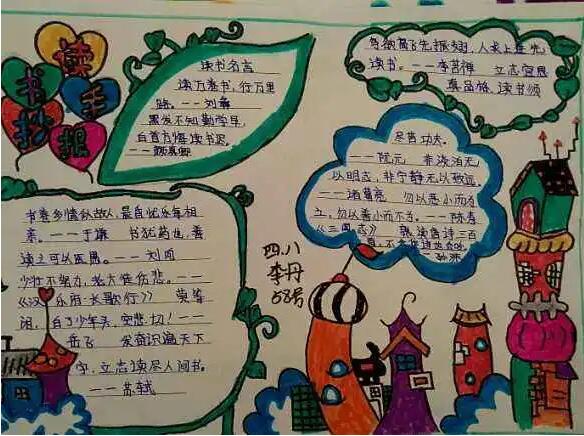 读书手抄报
读书名言
读万卷书，行万里
路。——刘彝
黑发不知勤学早，
白首方悔读书迟。
——颜真卿
鸟欲高飞先振翅，人求上进先
读书。——李苦禅 立志宜思
真品格，读书须
尽苦功夫。
——阮元 非淡泊无
以明志，非宁静无以致远。
——诸葛亮 勿以恶小而为
之，勿以善小而不为。——陈寿
《三国志》 熟读唐诗三百
孙洙
书卷多情似故人，晨昏忧乐每相
亲。——于谦 书犹药也，善
读之可以医愚。——刘向
少壮不努力，老大徒伤悲。——
《汉乐府·长歌行》 莫等
闲，白了少年头，空悲切！——
岳飞 发奋识遍天下
字，立志读尽人间书。
——苏轼
四.八
李丹
58号